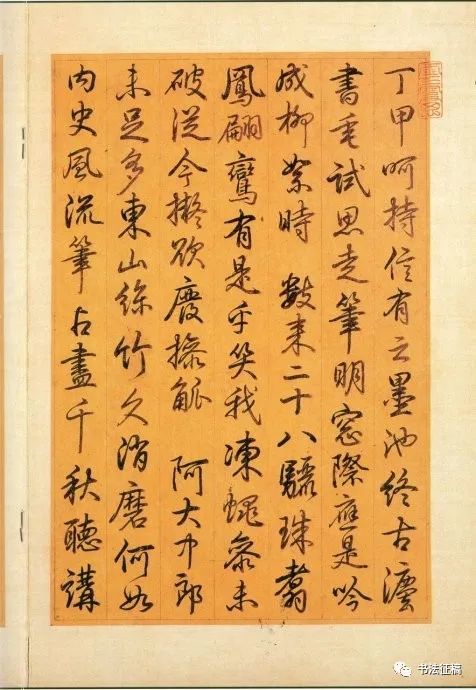 丁甲呵持信有之墨池終古灋
書垂試思走筆明窗際應是吟
成柳絮時 數來二十八驪珠翥
鳳翩鸞有是乎笑我凍蠅參未
破從今擬欲廢操觚 阿大中郎
未足多東山絲竹久消磨何如
內史風流筆占盡千秋聽講
书法征稿